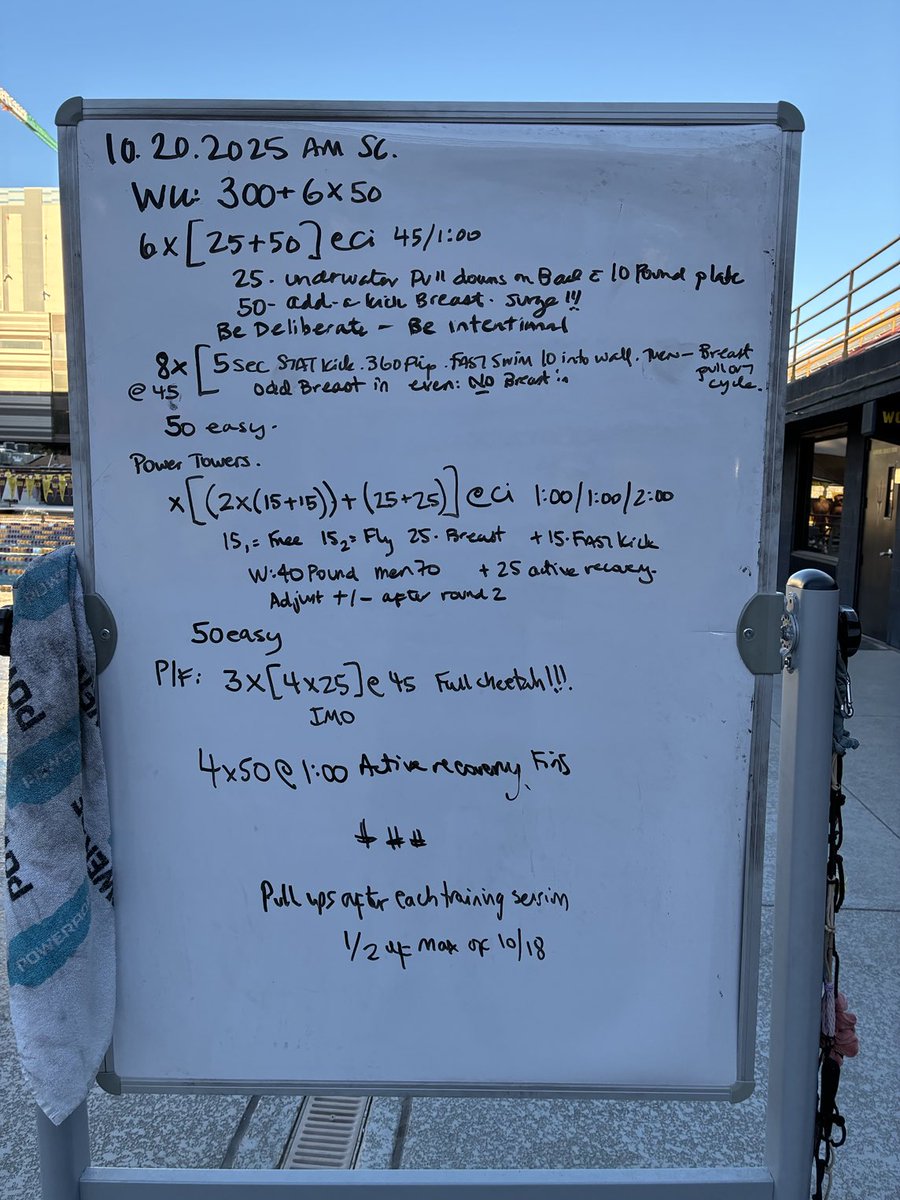 10.20.2025 AM SC.
WU: 300 + 6 x 50
6 x [25 + 50] @ci 45/1:00
25 - underwater Pull downs on Back c̄ 10 Pound plate
50 - add-a-kick Breast. Surge!!!
Be Deliberate - Be Intentional
8x [5 sec STAT Kick. 360 Flip. FAST Swim 10 into wall. Then - Breast
pull out
cycle.
@ 45 odd Breast in even: NO Breast in
50 easy.
Power Towers.
x[(2x(15+15))+(25+25)] @ci 1:00/1:00/2:00
15₁ = Free 15₂ = Fly 25 - Breast + 15 - FAST Kick
W: 40 Pound men 70 + 25 active recovery.
Adjust +/- after round 2
50 easy
P/F: 3x[4x25] @ 45 Full cheetah!!!.
IMO
4x50 @ 1:00 Active recovery Fins
###
Pull ups after each training session
1/2 of max of 10/18
POWER
POWER